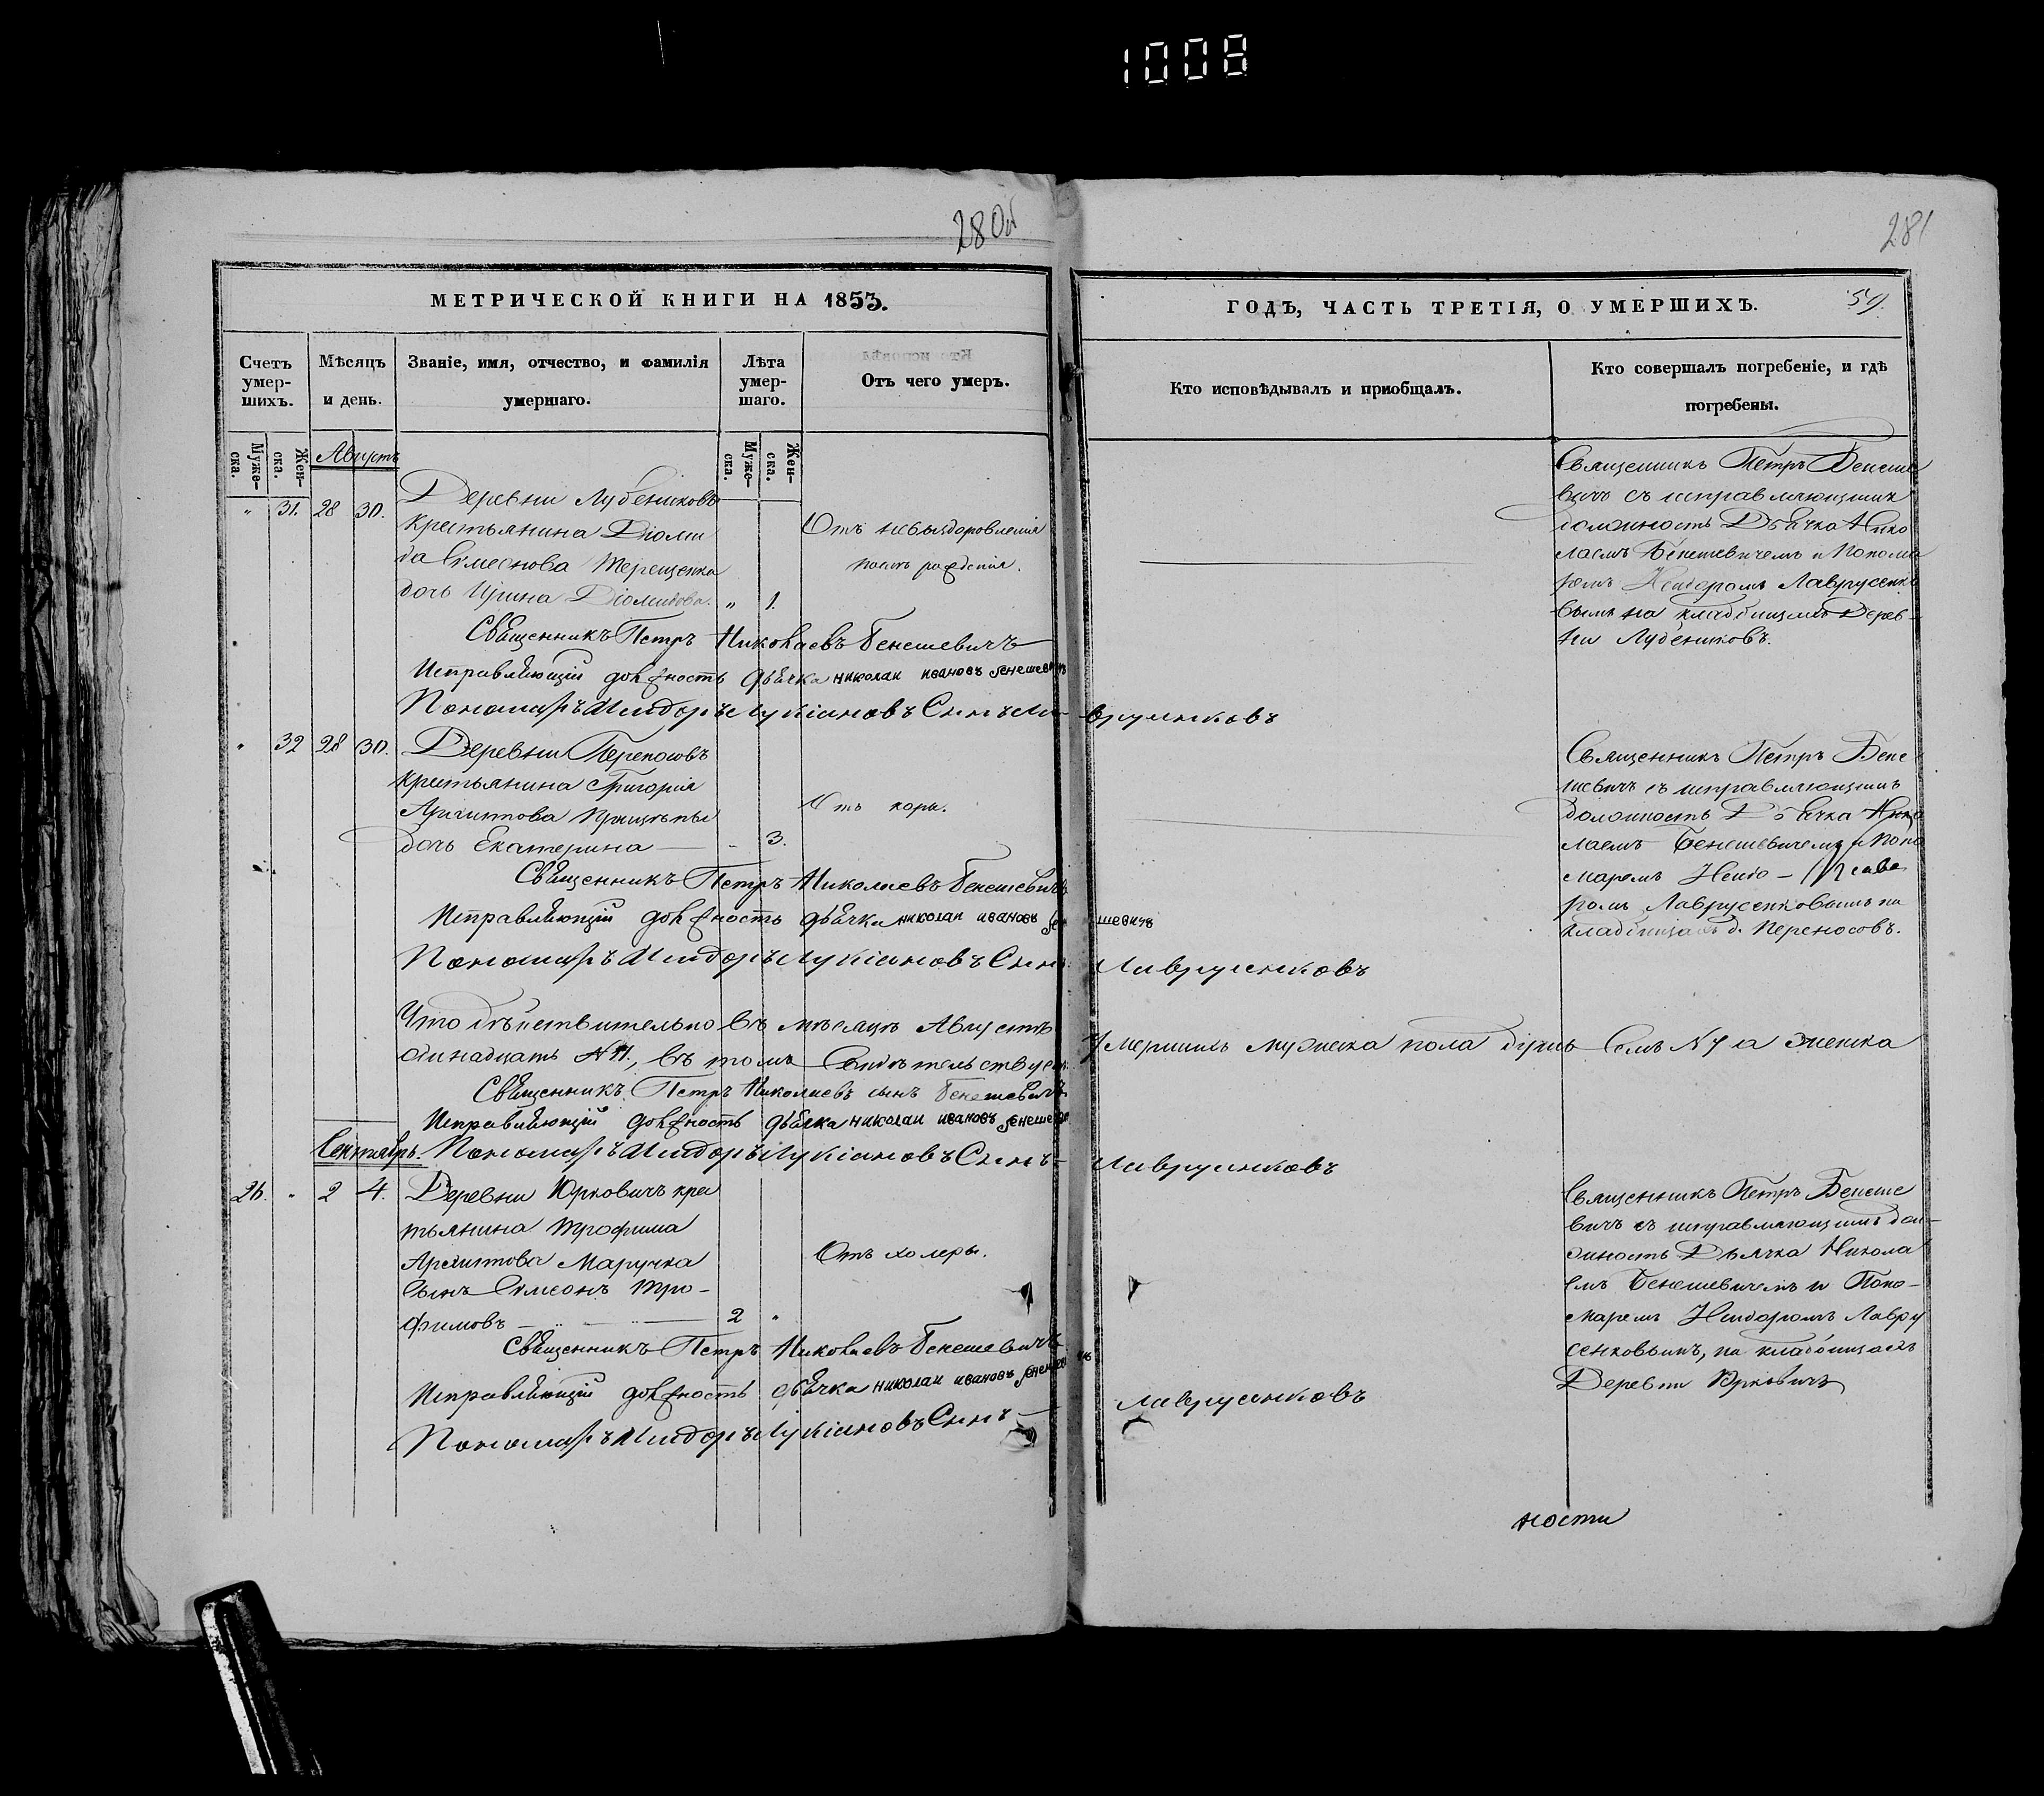 1008
280об
281
МЕТРИЧЕСКОЙ КНИГИ НА 1853.
ГОДЪ, ЧАСТЬ ТРЕТІЯ, О УМЕРШИХЪ.
59.
Счетъ умер-шихъ.
Мѣсяцъ и день.
Званіе, имя, отчество, и фамилія умершаго.
Лѣта умер-шаго.
Отъ чего умеръ.
Кто исповѣдывалъ и пріобщалъ.
Кто совершалъ погребеніе, и гдѣ погребены.
Муже-ска.
Жен-ска.
Муже-ска.
Жен-ска.
Августъ
" 31. 28 30.
Деревни Лубениковъ
крестьянина Діоми
да Симеонова Терещенка
дочь Ирина Діомидова. " 1.
Отъ невыздоровленія
послѣ рожденія.
Священникъ Петръ Бенеше
вичъ съ исправляющимъ
должность Дьячка Нико
лаемъ Бенешевичемъ и Понома
ремъ Исидоромъ Лаврусенко
вымъ на кладбищахъ Дерев-
ни Лубениковъ.
Священникъ Петръ Николаевъ Бенешевичъ
Исправляющій должность дьячка николаи ивановъ бенешевичъ
Пономарь Исидоръ Лукіановъ Сынъ Лаврусенковъ
" 32 28 30.
Деревни Переносовъ
крестьянина Григорія
Архиптова
дочь Екатерина — 3.
Отъ кори.
Священникъ Петръ Бене
шевичъ съ исправляющимъ
должность Дьячка Нико
лаемъ Бенешевичемъ и Поно
маремъ Исидо-
ромъ Лаврусенковымъ на
кладбищахъ д. Переносовъ.
Священникъ Петръ Николаевъ Бенешевичъ
Исправляющій должность дьячка николаи ивановъ бенешевичъ
Пономарь Исидоръ Лукіановъ Сынъ Лаврусенковъ
Что дѣйствительно въ мѣсяцѣ Августѣ умершихъ мужеска пола душъ семь №7 а женска
одинадцать №11., въ томъ свидѣтельствуемъ
Священникъ Петръ Николаевъ сынъ Бенешевичъ
Исправляющій должность дьячка николаи ивановъ бенешевичъ
Пономарь Исидоръ Лукіановъ Сынъ Лаврусенковъ
Сентябрь.
26. " 2 4.
Деревни Юрковичъ крес
тьянина Трофима
Архиптова Маручка
сынъ Симеонъ Тро-
фимовъ — 2 "
Отъ холеры.
Священникъ Петръ Бенеше
вичъ съ исправляющимъ дол-
жность Дьячка Никола
емъ Бенешевичемъ и Поно-
маремъ Исидоромъ Лавру
сенковымъ, на кладбищахъ
Деревни Юрковичъ
Священникъ Петръ Николаевъ Бенешевичъ
Исправляющій должность дьячка николаи ивановъ бенешевичъ
Пономарь Исидоръ Лукіановъ Сынъ Лаврусенковъ
ности